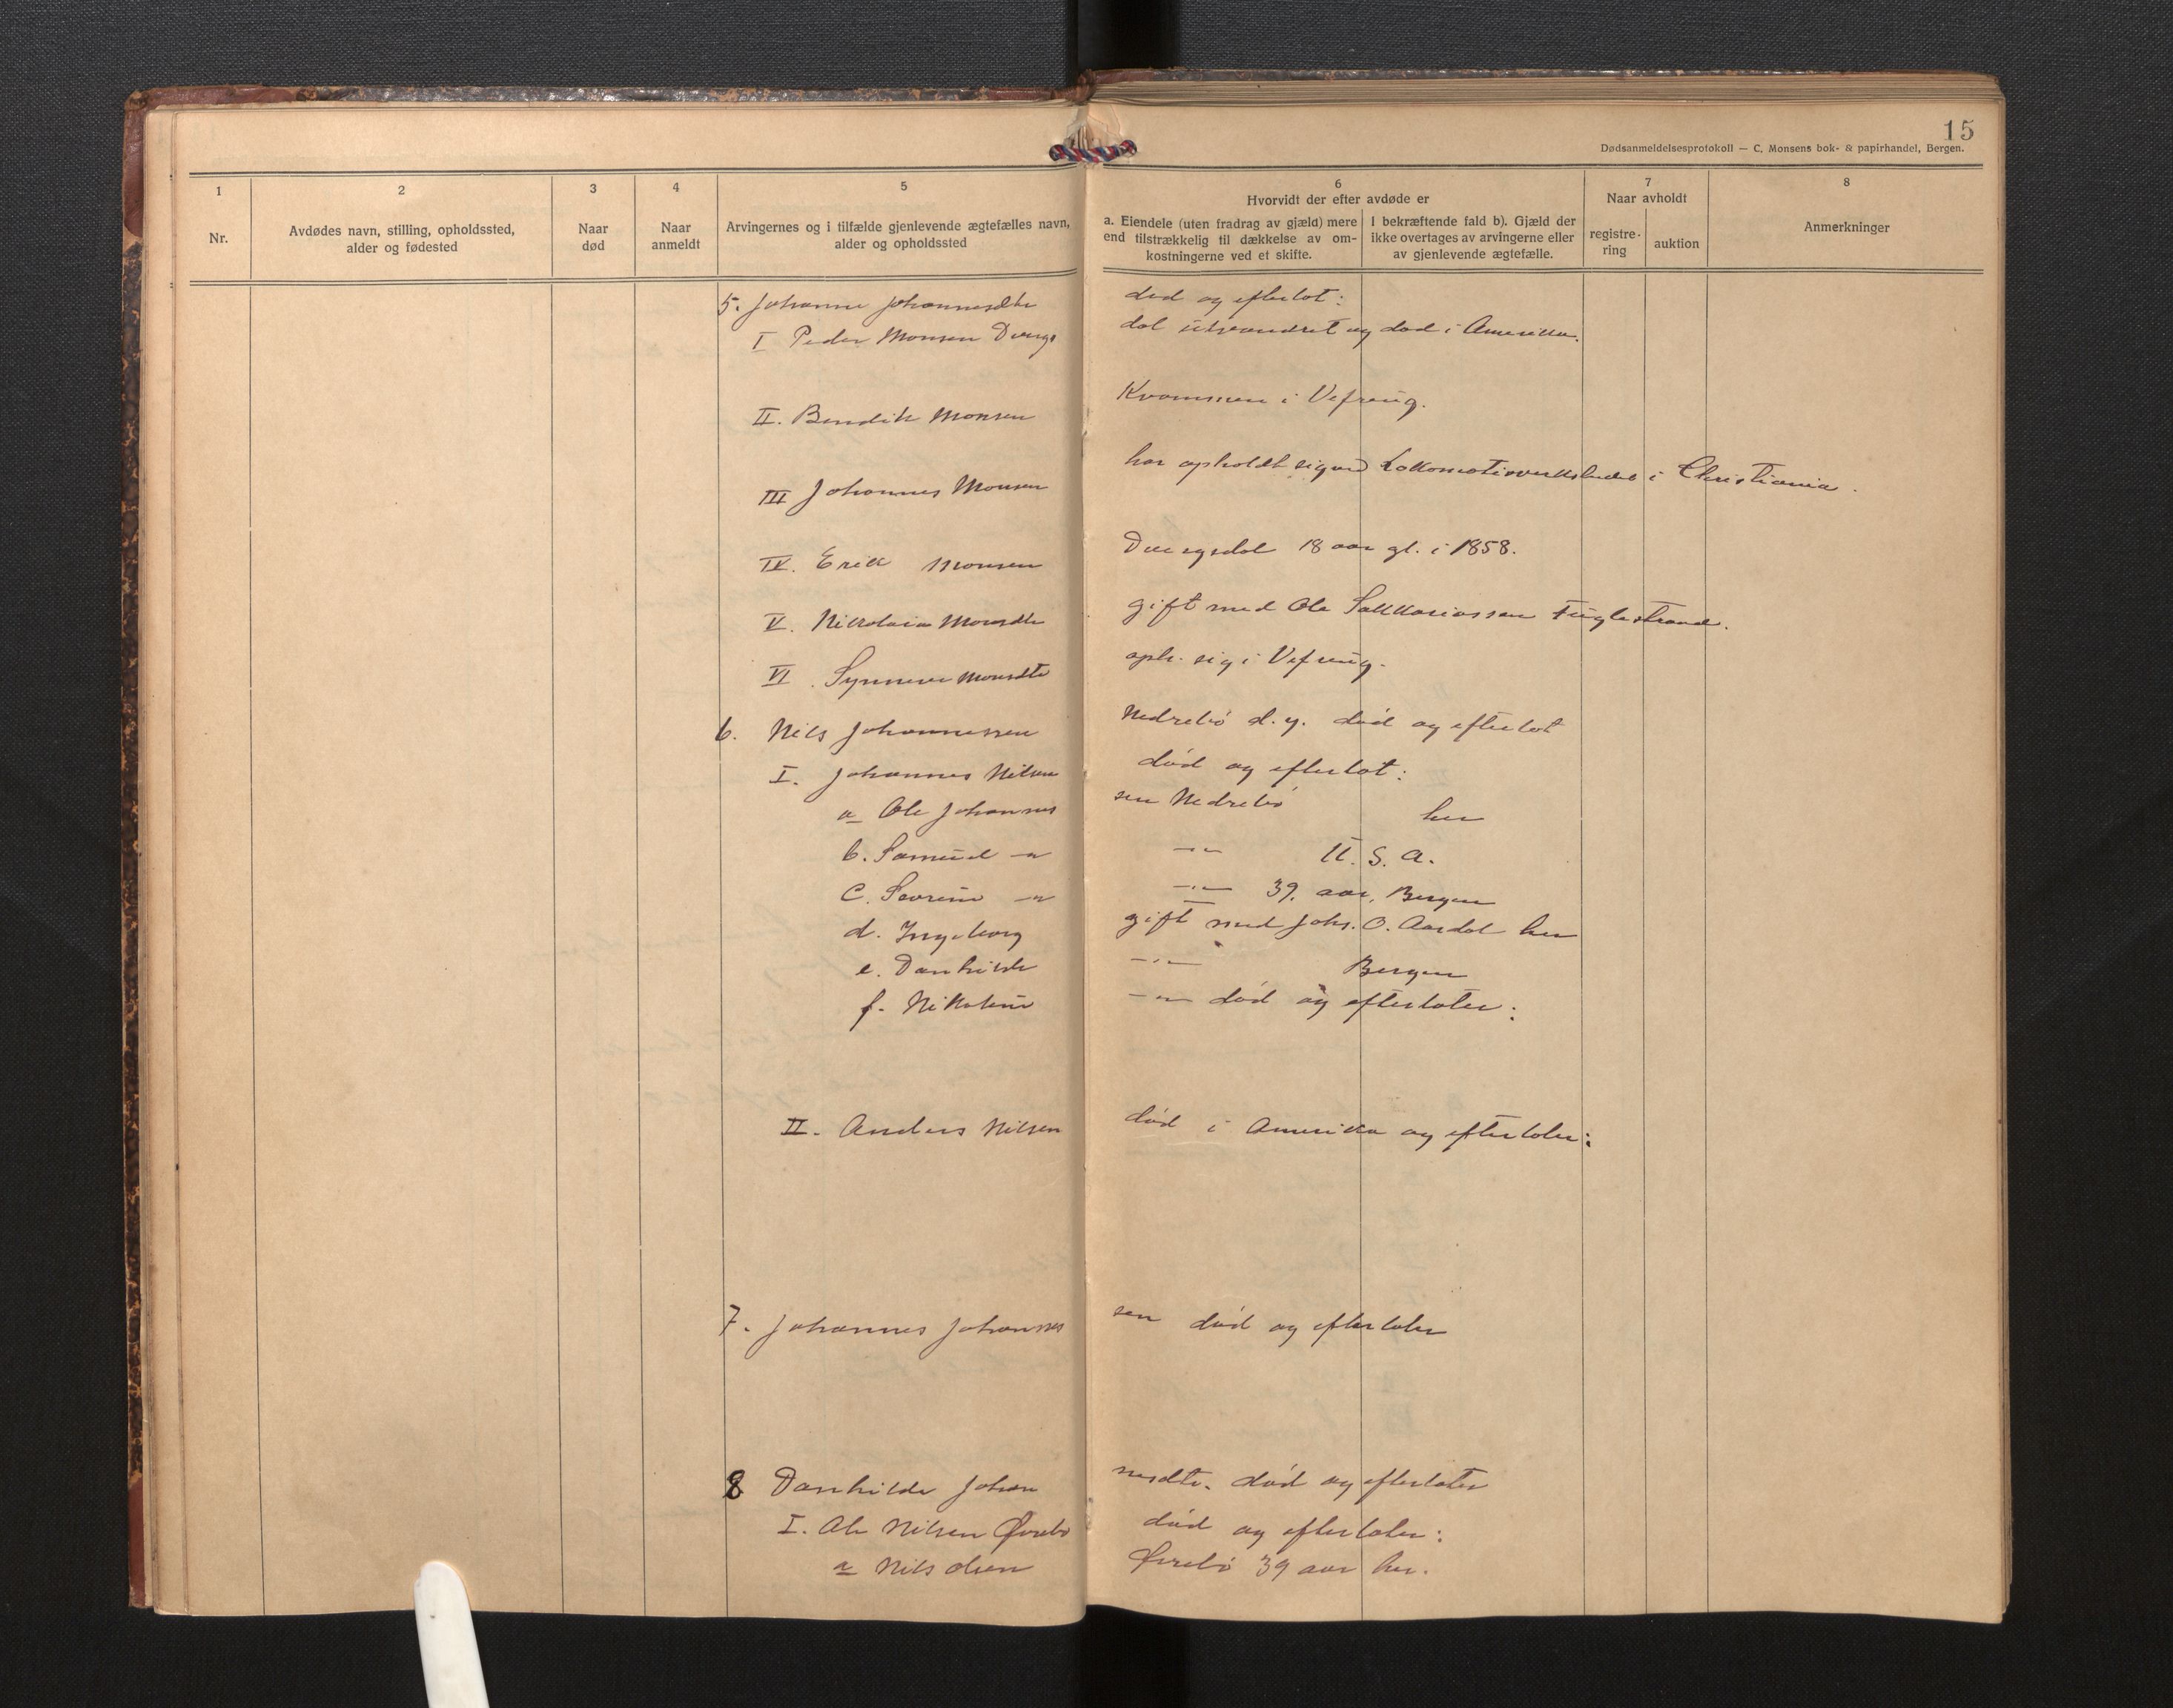 15
Dødsanmeldelsesprotokoll — C. Monsens bok- & papirhandel, Bergen.
1
2
3
4
5
6
7
8
Nr.
Avdødes navn, stilling, opholdssted,
alder og fødested
Naar
død
Naar
anmeldt
Arvingernes og i tilfælde gjenlevende ægtefælles navn,
alder og opholdssted
Hvorvidt der efter avdøde er
a. Eiendele (uten fradrag av gjæld) mere
end tilstrækkelig til dækkelse av om-
kostningerne ved et skifte.
I bekræftende fald b). Gjæld der
ikke overtages av arvingerne eller
av gjenlevende ægtefælle.
Naar avholdt
registre-
ring
auktion
Anmerkninger
5. Johanne Johannesdte død og efterlot:
I Peder Monsen Dvergs dal utvandret og død i Amerika.
II. Bendik Monsen Kvammen i Vefring.
III Johannes Monsen har opholdt sig ved Lokomotivverkstedet i Christiania.
IV. Erik Monsen Dvergsdal 18 aar gl. i 1858.
V. Nikolaia Monsdte gift med Ole Sakkariassen Fuglestrand.
VI. Synneve Monsdte oph. sig i Vefring.
6. Nils Johannessen Nedrebø d.y. død og efterlot
I. Johannes Nilsen død og efterlot:
a Ole Johannes sen Nedrebø her
b. Samuel —"— —"— U.S.A.
c. Severin —"— —"— 39 aar, Bergen
d. Ingeborg gift med Johs. O. Aardal her
e. Danhilde —"— Bergen
f. Nikoline —"— død og efterlater:
II. Anders Nilsen død i Amerika og efterlater:
7. Johannes Johannes sen død og efterlater
8 Danhilde Johan nesdte. død og efterlater
I. Ole Nilsen Øvrebø død og efterlater:
a Nils Olsen Øvrebø 39 aar her.